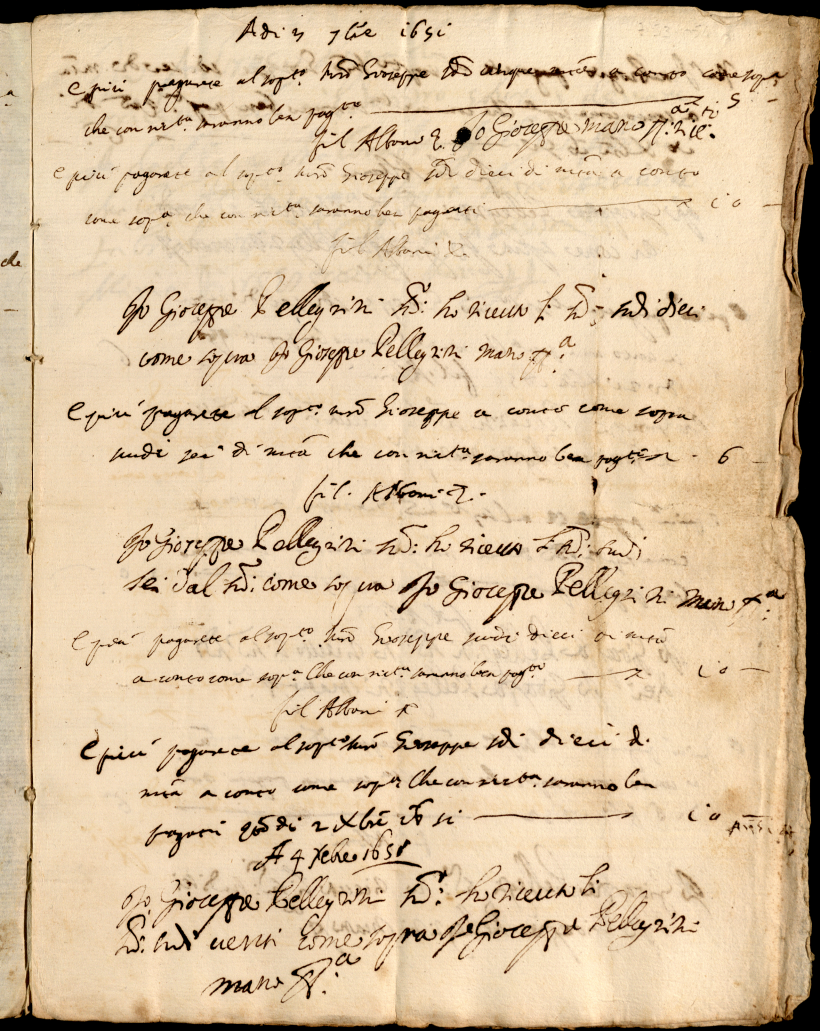 Adi 3 7bre 1651
E piu pagarete al sop.to m.ro Gioseppe sdi cinque m.ta a conto come sop.a
che con ric.ta saranno ben pag.te 5
fil Alboni Io Gioseppe mano pp.ria
E piu pagarete al sop.to m.ro Gioseppe sdi dieci di m.ta a conto
come sop.a che con ric.ta saranno ben pagati 10
fil Alboni
Io Gioseppe Pellegrini sd: ho riceuto li sd: sdi dieci
come sopra Io Gioseppe Pellegrini mano pp.a
E piu pagarete al sop.to m.ro Gioseppe a conto come sopra
scudi sei di m.ta che con ric.ta saranno ben pag.te 6
fil. Alboni
Io Gioseppe Pellegrini sd: ho riceuto li sd: scudi
sei dal sd: come sopra Io Gioseppe Pellegrini mano pp.a
E piu pagarete al sop.to m.ro Gioseppe scudi dieci di m.ta
a conto come sop.a che con ric.ta saranno ben pag.te 10
fil Alboni
E piu pagarete al sop.to m.ro Gioseppe sdi dieci di
m.ta a conto come sop.a che con ric.ta saranno ben
pagati di 2 Xbre 1651 10
A 4 Xbre 1651
Io Gioseppe Pellegrini sd: ho riceuto li
sd: scudi uenti come sopra Io Gioseppe Pellegrini
mano pp.a